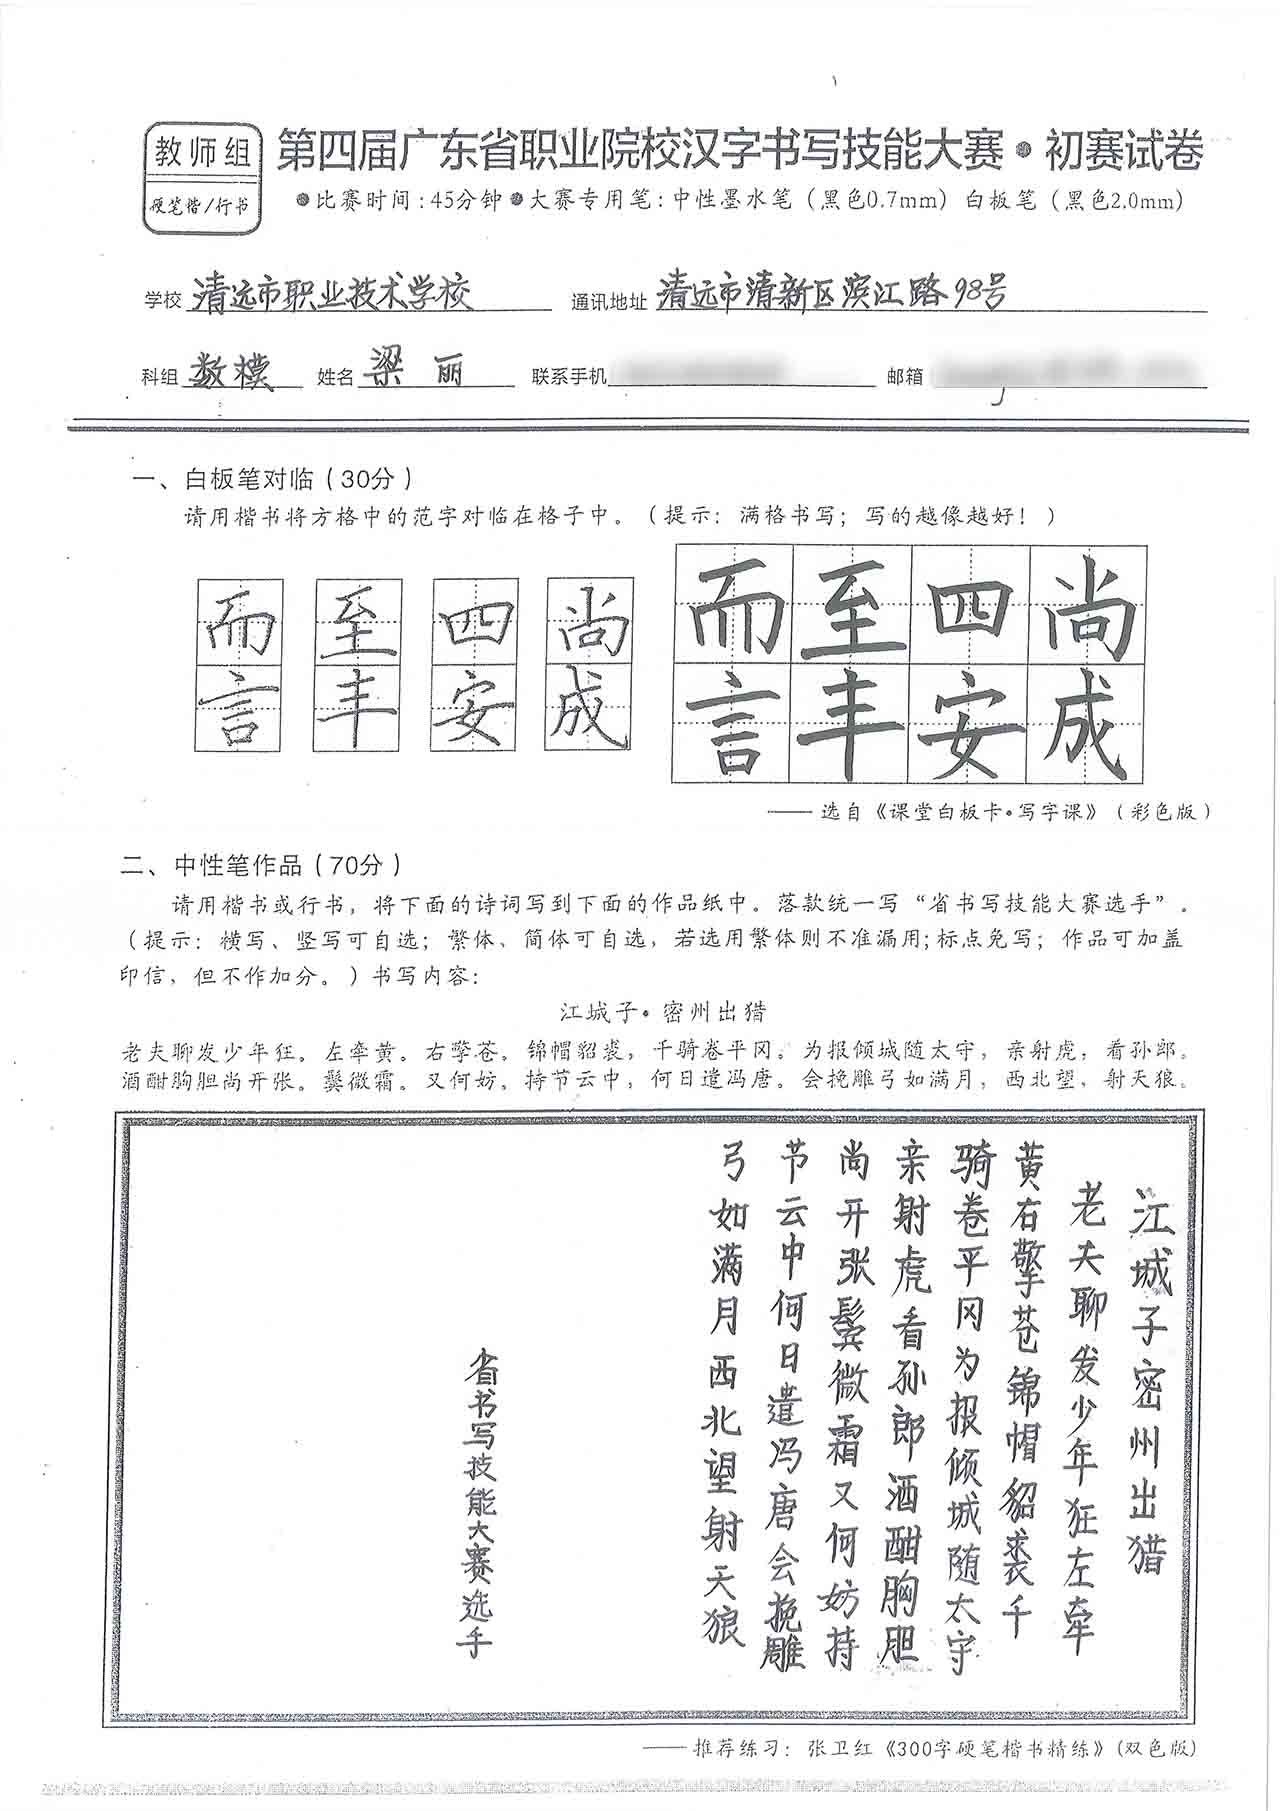 教师组
硬笔楷/行书
第四届广东省职业院校汉字书写技能大赛•初赛试卷
●比赛时间:45分钟●大赛专用笔:中性墨水笔（黑色0.7mm）白板笔（黑色2.0mm）
学校 清远市职业技术学校 通讯地址 清远市清新区滨江路98号
科组 数模 姓名 梁丽 联系手机 邮箱
一、白板笔对临（30分）
请用楷书将方格中的范字对临在格子中。（提示：满格书写；写的越像越好！）
而 至 四 尚 而 至 四 尚
言 丰 安 成 言 丰 安 成
——选自《课堂白板卡•写字课》（彩色版）
二、中性笔作品（70分）
请用楷书或行书，将下面的诗词写到下面的作品纸中。落款统一写“省书写技能大赛选手”。
（提示：横写、竖写可自选；繁体、简体可自选，若选用繁体则不准漏用;标点免写；作品可加盖
印信，但不作加分。）书写内容：
江城子•密州出猎
老夫聊发少年狂。左牵黄。右擎苍。锦帽貂裘，千骑卷平冈。为报倾城随太守，亲射虎，看孙郎。
酒酣胸胆尚开张。鬓微霜。又何妨。持节云中，何日遣冯唐。会挽雕弓如满月，西北望，射天狼。
江城子密州出猎
老夫聊发少年狂左牵
黄右擎苍锦帽貂裘千
骑卷平冈为报倾城随太守
亲射虎看孙郎酒酣胸胆
尚开张鬓微霜又何妨持
节云中何日遣冯唐会挽雕
弓如满月西北望射天狼
省书写技能大赛选手
——推荐练习：张卫红《300字硬笔楷书精练》(双色版)